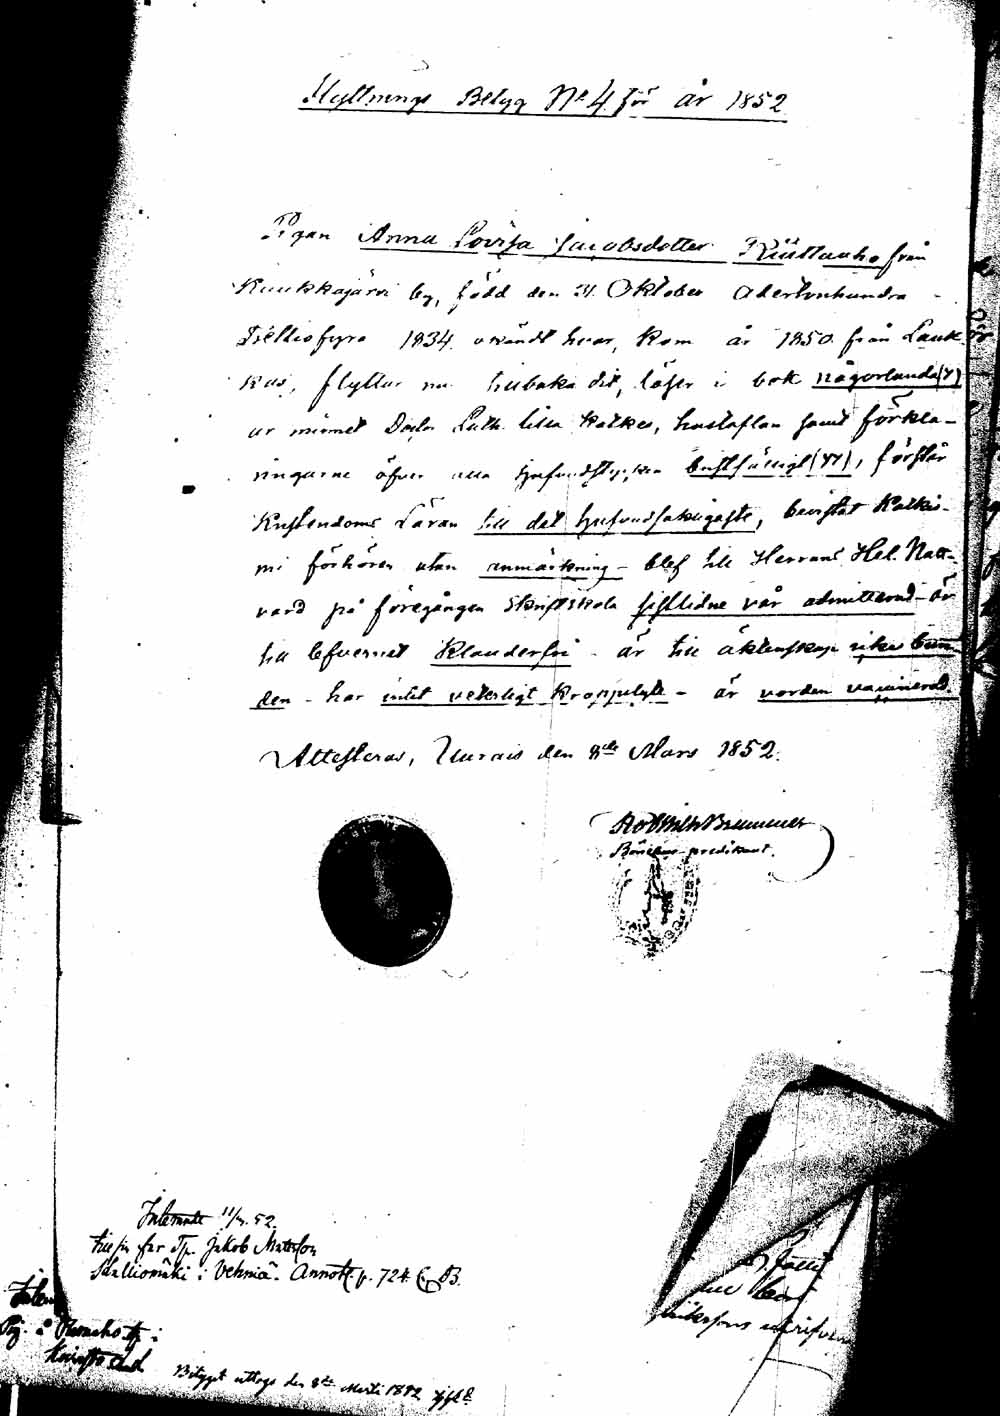 Flyttnings Betyg Nº 4 för år 1852
Pigan Anna Lovisa Jacobsdotter Riuttanho från
Kuukkajärvi by, född den 31 Oktober Adertonhundra
Trettiofyra 1834 okändt hvar, kom år 1850 från Lauk-
kas, flyttar nu tillbaka dit, läser i bok någorlunda (7)
ur minnet Doctor Luth. lilla Katkes, hustaflan samt förkla-
ringarne öfver alla hufvudstycken bristfälligt (77), förstår
Kristendoms Läran till det hufvudsakligaste, bevistat Katkis-
mi förhören utan anmärkning - blef till Herrans Hel. Natt-
vard på föregången Skriftskola sistlidne vår admitterad - är
till lefvernet Klanderfri - är till äktenskap icke bun-
den - har intet veterligt kroppslyte - är vorden vaccinerad.
Attesteras, Uurais den 8de Mars 1852.
Rob Wilh Brummer
Bönehus-predikant.
Inlemnadt 11/3. 52.
Jakob Matsson
Salliomäki i Vehniä. Annot. p. 724 C. B.
Betyget uttogs den 8de Martii 1852